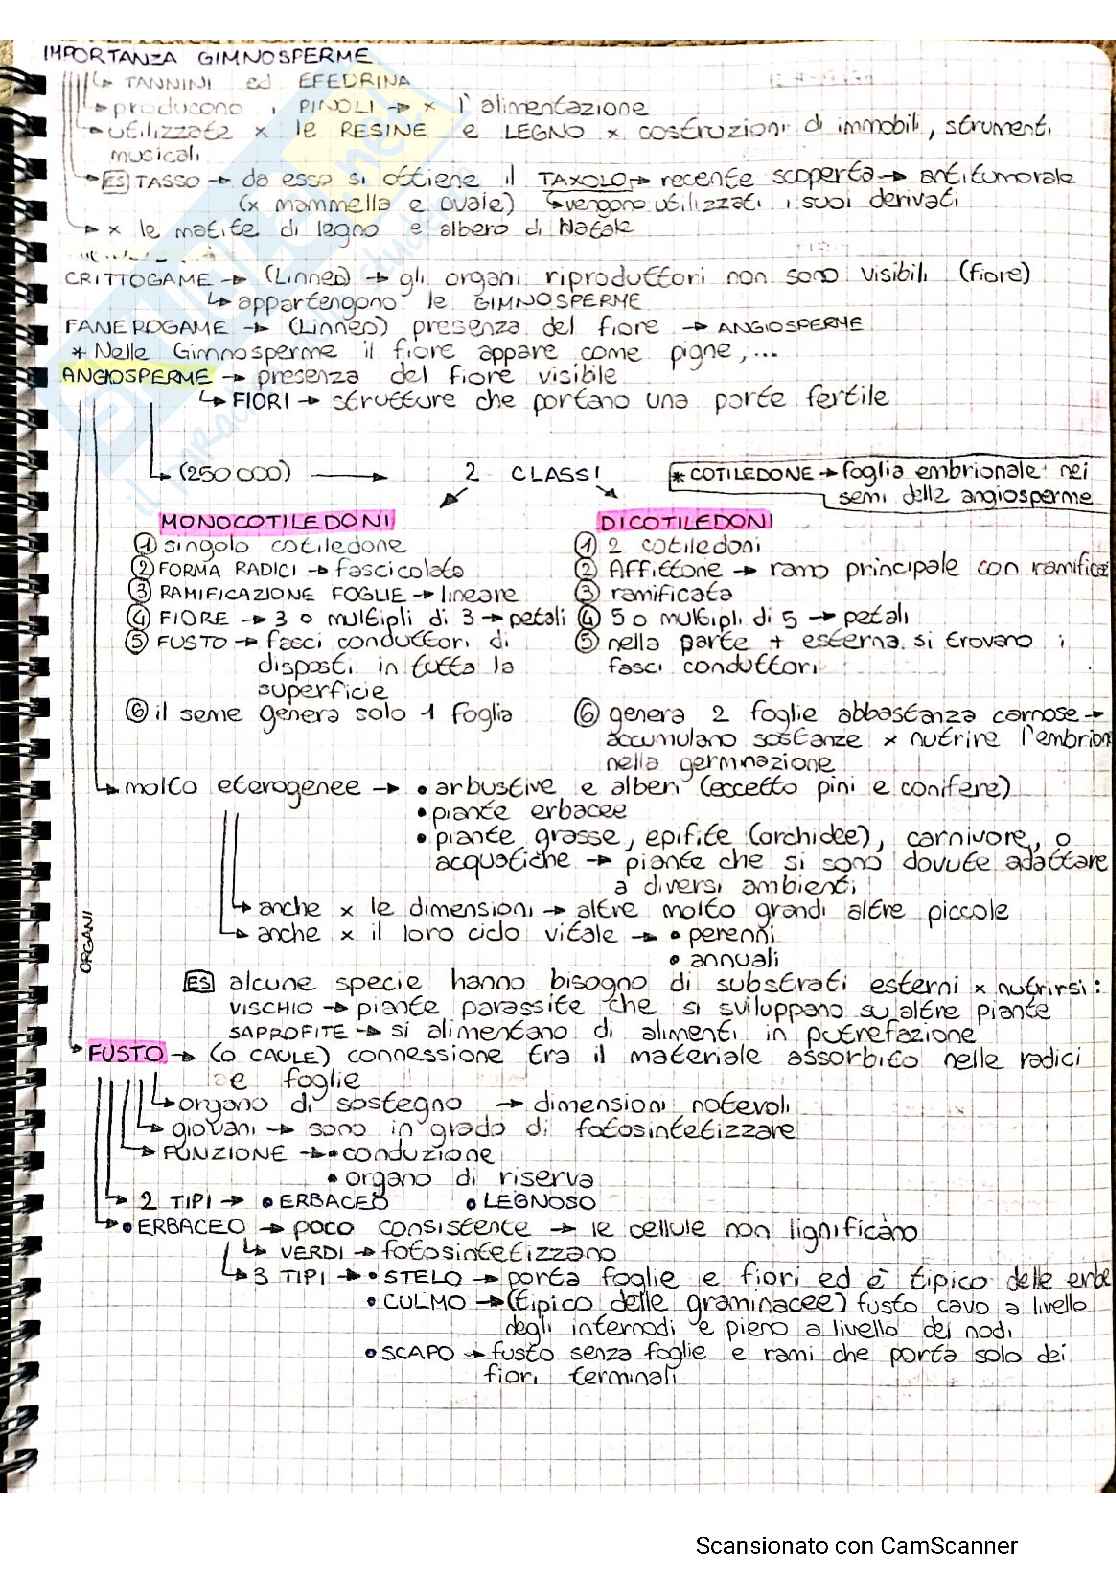 IMPORTANZA GIMNOSPERME
↳ TANNINI ed EFEDRINA
→ producono i PINOLI → x l'alimentazione
→ utilizzate x le RESINE e LEGNO x costruzioni di immobili, strumenti
musicali
→ ES TASSO → da esso si ottiene il TAXOLO → recente scoperta → antitumorale
(x mammella e ovaie) ↳ vengono utilizzati i suoi derivati
→ x le matite di legno e albero di Natale
CRITTOGAME → (Linneo) → gli organi riproduttori non sono visibili (fiore)
↳ appartengono le GIMNOSPERME
FANEROGAME → (Linneo) presenza del fiore → ANGIOSPERME
* Nelle Gimnosperme il fiore appare come pigne,...
ANGIOSPERME → presenza del fiore visibile
↳ FIORI → strutture che portano una parte fertile
↳ (250 000) → 2 CLASSI
* COTILEDONE → foglia embrionale nei
semi delle angiosperme
MONOCOTILEDONI
① singolo cotiledone
② FORMA RADICI → fascicolata
③ RAMIFICAZIONE FOGLIE → lineare
④ FIORE → 3 o multipli di 3 → petali
⑤ FUSTO → fasci conduttori di
disposti in tutta la
superficie
⑥ il seme genera solo 1 foglia
DICOTILEDONI
① 2 cotiledoni
② Affittone → ramo principale con ramifica
③ ramificata
④ 5 o multipli di 5 → petali
⑤ nella parte + esterna si trovano i
fasci conduttori
⑥ genera 2 foglie abbastanza carnose →
accumulano sostanze x nutrire l'embrion
nella germinazione
↳ molto eterogenee → • arbustive e alberi (eccetto pini e conifere)
• piante erbacee
• piante grasse, epifite (orchidee), carnivore, o
acquatiche → piante che si sono dovute adattare
a diversi ambienti
↳ anche x le dimensioni → altre molto grandi altre piccole
↳ anche x il loro ciclo vitale → • perenni
• annuali
ORGANI
ES alcune specie hanno bisogno di substrati esterni x nutrirsi:
VISCHIO → piante parassite che si sviluppano su altre piante
SAPROFITE → si alimentano di alimenti in putrefazione
FUSTO → (o CAULE) connessione tra il materiale assorbito nelle radici
e foglie
↳ organo di sostegno → dimensioni notevoli
↳ giovani → sono in grado di fotosintetizzare
→ FUNZIONE → • conduzione
• organo di riserva
→ 2 TIPI → • ERBACEO • LEGNOSO
→ • ERBACEO → poco consistente → le cellule non lignificano
↳ VERDI → fotosintetizzano
↳ 3 TIPI → • STELO → porta foglie e fiori ed è tipico delle erbe
• CULMO → (tipico delle graminacee) fusto cavo a livello
degli internodi e pieno a livello dei nodi
• SCAPO → fusto senza foglie e rami che porta solo dei
fiori terminali
Scansionato con CamScanner